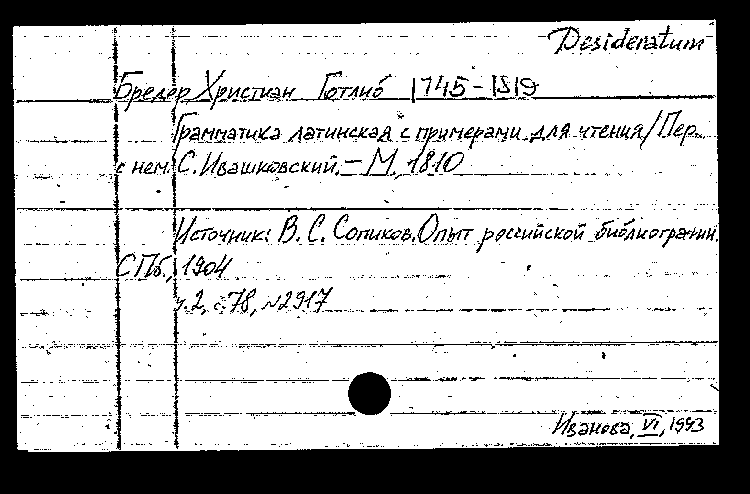 Desideratum
Бредер Христиан Готлиб 1745-1819
Грамматика латинская с примерами для чтения/Пер.
с нем. С. Ивашковский. – М., 1810
Источник: В. С. Сопиков. Опыт российской библиографии.
СПб, 1904
ч.2, с.78, №2917
Иванова, VI, 1993